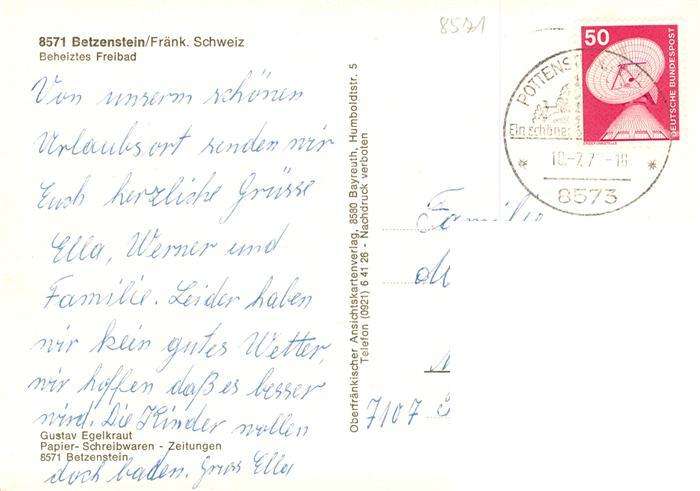 8571
8571 Betzenstein/Fränk. Schweiz
Beheiztes Freibad
Von unserm schönen
Urlaubsort senden wir
Euch herzliche Grüsse
Ella, Werner und
Familie. Leider haben
wir kein gutes Wetter,
wir hoffen daß es besser
wird. Die Kinder wollen
doch baden. Gruss Ella
Gustav Egelkraut
Papier- Schreibwaren - Zeitungen
8571 Betzenstein
Oberfränkischer Ansichtskartenverlag, 8580 Bayreuth, Humboldtstr. 5
Telefon (0921) 6 41 26 - Nachdruck verboten
50
DEUTSCHE BUNDESPOST
POTTENS
Ein schöner
-18
8573
Familie
M
7107